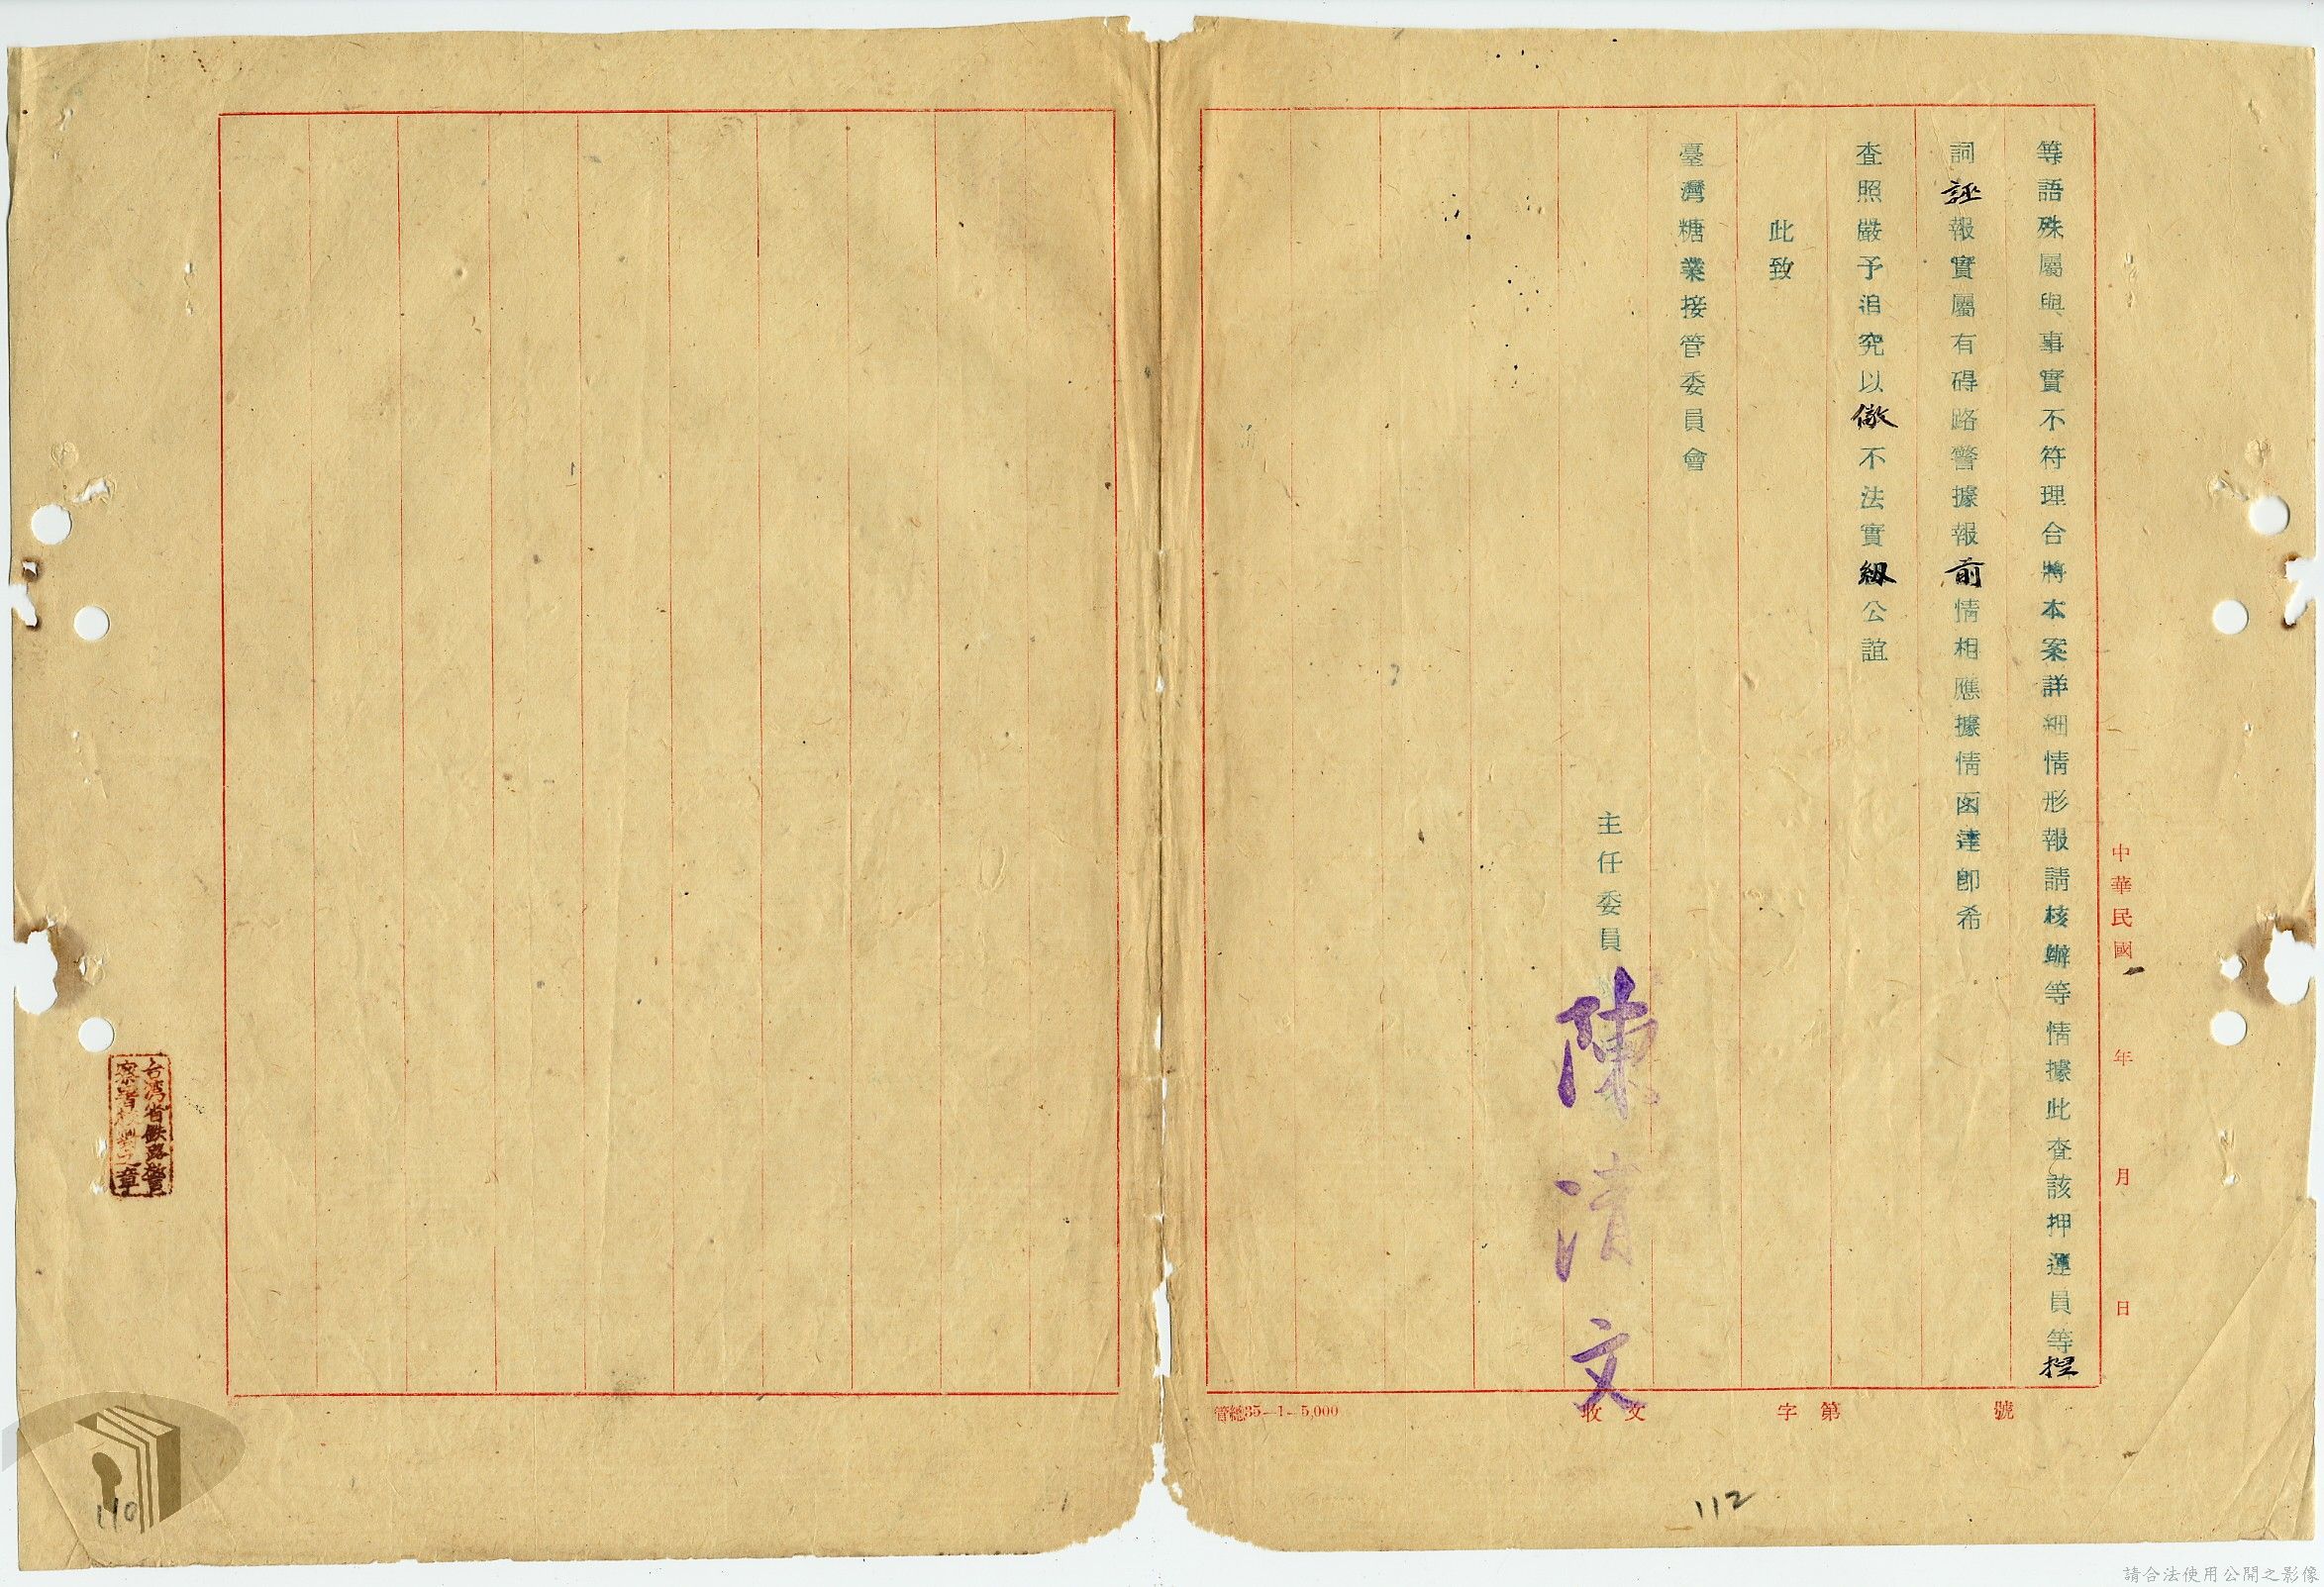 中華民國 年 月 日
等語殊屬與事實不符理合將本案詳細情形報請核辦等情據此查該押運員等捏
詞誣報實屬有碍路警據報前情相應據情函達卽希
查照嚴予追究以儆不法實級公誼
此致
臺灣糖業接管委員會
主任委員 陳清文
收文 字第 號
管總35—1—5,000
112
台湾省鉄路警
察署
章
110
請合法使用公開之影像